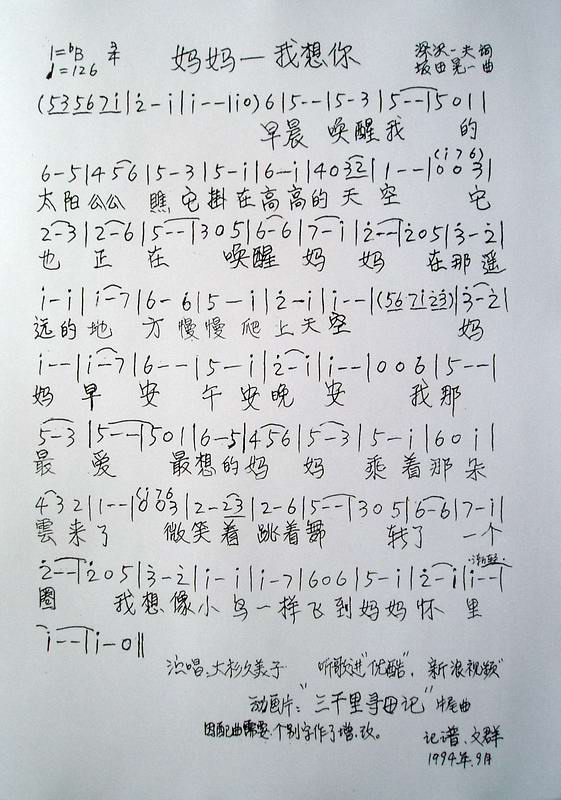 1=♭B 3/4 妈妈—我想你 深沢一夫 词
♩=126 坂田晃一 曲
(5 3 5 6 7 i | 2̇ - i | i - - | i 0) 6 | 5 - - | 5 - 3 | 5 - - | 5 0 1 |
早晨 唤醒我 的
6 - 5 | 4 5 6 | 5 - 3 | 5 - i | 6 - i | 4 0 3 2 | 1 - - | (i 7 6) 0 0 3 |
太阳公公 瞧它掛在高高的天空 它
2 - 3 | 2 - 6 | 5 - - | 3 0 5 | 6 - 6 | 7 - i | 2̇ - - | 2̇ 0 5 | 3̇ - 2̇ |
也 正 在 唤醒 妈 妈 在那遥
i - i | i - 7 | 6 - 6 | 5 - i | 2̇ - i | i - - | (5 6 7 i 2̇ 3̇) | 3̇ - 2̇ |
远的地 方慢慢爬上天空 妈
i - - | i - 7 | 6 - - | 5 - i | 2̇ - i | i - - | 0 0 6 | 5 - - |
妈 早 安 午安晚 安 我那
5 - 3 | 5 - - | 5 0 1 | 6 - 5 | 4 5 6 | 5 - 3 | 5 - i | 6 0 i |
最 爱 最想的妈 妈 乘着那朵
4 3 2 | 1 - - | (i 7 6) 0 0 3 | 2 - 2 3 | 2 - 6 | 5 - - | 3 0 5 | 6 - 6 | 7 - i |
雲来了 微笑着 跳着舞 转了 一个
2̇ - - | 2̇ 0 5 | 3̇ - 2̇ | i - i | i - 7 | 6 0 6 | 5 - i | 2̇ - i | i - - |
渐轻
圈 我想像小鸟一样飞到妈妈怀 里
i - - | i - 0 ||
演唱:大杉久美子 听歌进"优酷",新浪视频"
动画片:"三千里寻母记"片尾曲
因配曲需要,个别字作了增、改。
记谱、文群
1994年.9月